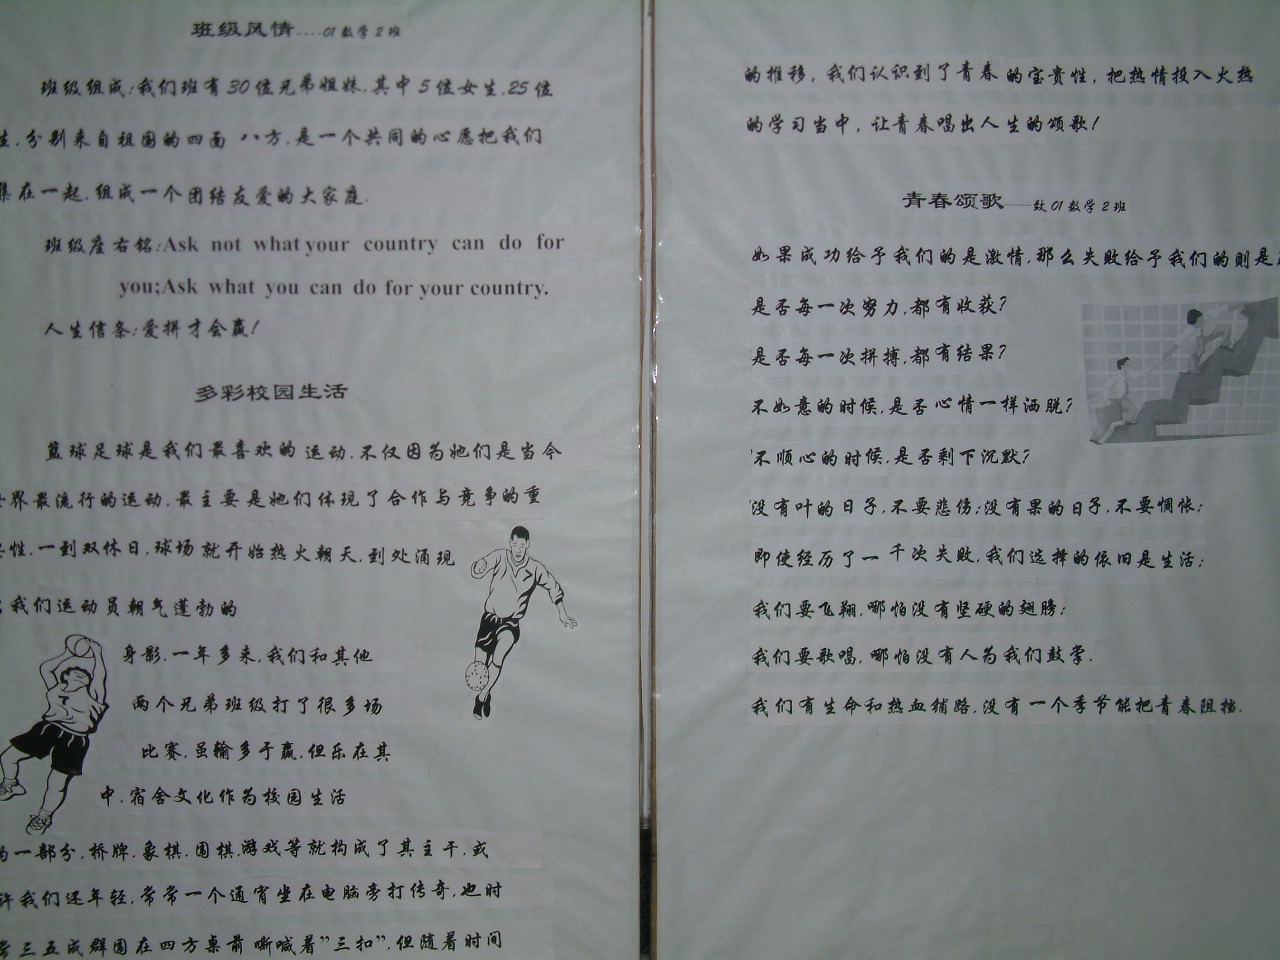 班级风情....01数学2班
班级组成:我们班有30位兄弟姐妹.其中5位女生.25位
生,分别来自祖国的四面八方.是一个共同的心愿把我们
集在一起.组成一个团结友爱的大家庭.
班级座右铭:Ask not what your country can do for
you;Ask what you can do for your country.
人生信条:爱拼才会赢!
多彩校园生活
篮球足球是我们最喜欢的运动.不仅因为她们是当今
世界最流行的运动.最主要是她们体现了合作与竞争的重
要性.一到双休日.球场就开始热火朝天.到处涌现
我们运动员朝气蓬勃的
身影.一年多来.我们和其他
两个兄弟班级打了很多场
比赛.虽输多于赢.但乐在其
中.宿舍文化作为校园生活
的一部分.桥牌.象棋.围棋.游戏等就构成了其主干.或
许我们还年轻.常常一个通宵坐在电脑旁打传奇.也时
常三五成群围在四方桌前嘶喊着"三扣".但随着时间
的推移,我们认识到了青春的宝贵性,把热情投入火热
的学习当中,让青春唱出人生的颂歌!
青春颂歌——致01数学2班
如果成功给予我们的是激情.那么失败给予我们的则是
是否每一次努力.都有收获?
是否每一次拼搏.都有结果?
不如意的时候.是否心情一样洒脱?
不顺心的时候.是否剩下沉默?
没有叶的日子.不要悲伤;没有果的日子.不要惆怅;
即使经历了一千次失败.我们选择的依旧是生活;
我们要飞翔.哪怕没有坚硬的翅膀;
我们要歌唱.哪怕没有人为我们鼓掌.
我们有生命和热血铺路.没有一个季节能把青春阻挡.